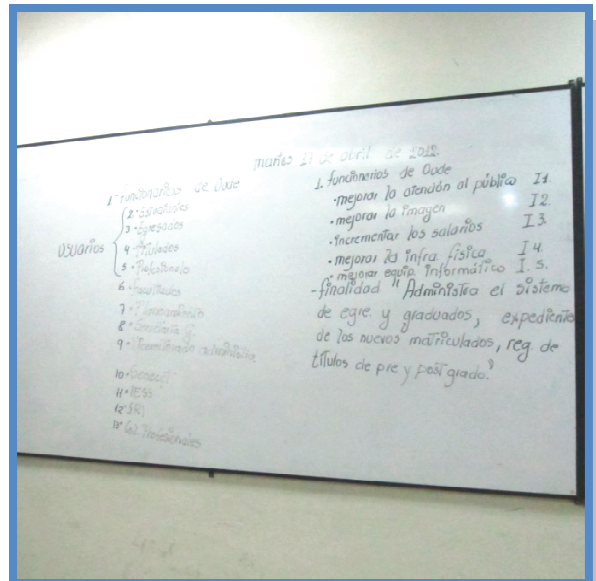 martes 17 de abril de 2012.
1. funcionarios de Oude
2. Estudiantes
3. Egresados
usuarios
4. Titulados
5. Profesionales
6. Facultades
7.
8. Secretaría G.
9.
10. Senescyt
11. IESS
12. SRI
13. Col. Profesionales
1. funcionarios de Oude
·mejorar la atención al público I1
·mejorar la imagen I2.
·incrementar los salarios I3.
·mejorar la infra. física I4.
·mejorar equip. informático I.5.
-finalidad "Administra el sistema
de egre. y graduados, expediente
de los nuevos matriculados, reg. de
títulos de pre y postgrado."